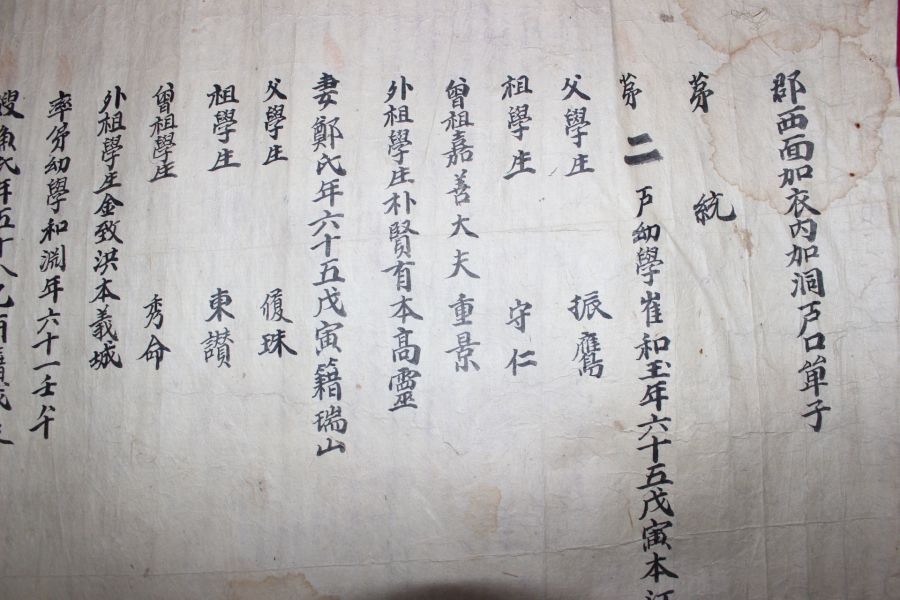 郡西面加衣內加洞戶口單子
苐 統
苐二 戶幼學崔和玉年六十五戊寅本江
父學生 振鷹
祖學生 守仁
曾祖嘉善大夫重景
外祖學生朴賢有本高靈
妻鄭氏年六十五戊寅籍瑞山
父學生 復珠
祖學生 東讃
曾祖學生 秀命
外祖學生金致洪本義城
率弟幼學和淵年六十一壬午
嫂 氏年五十八乙酉籍